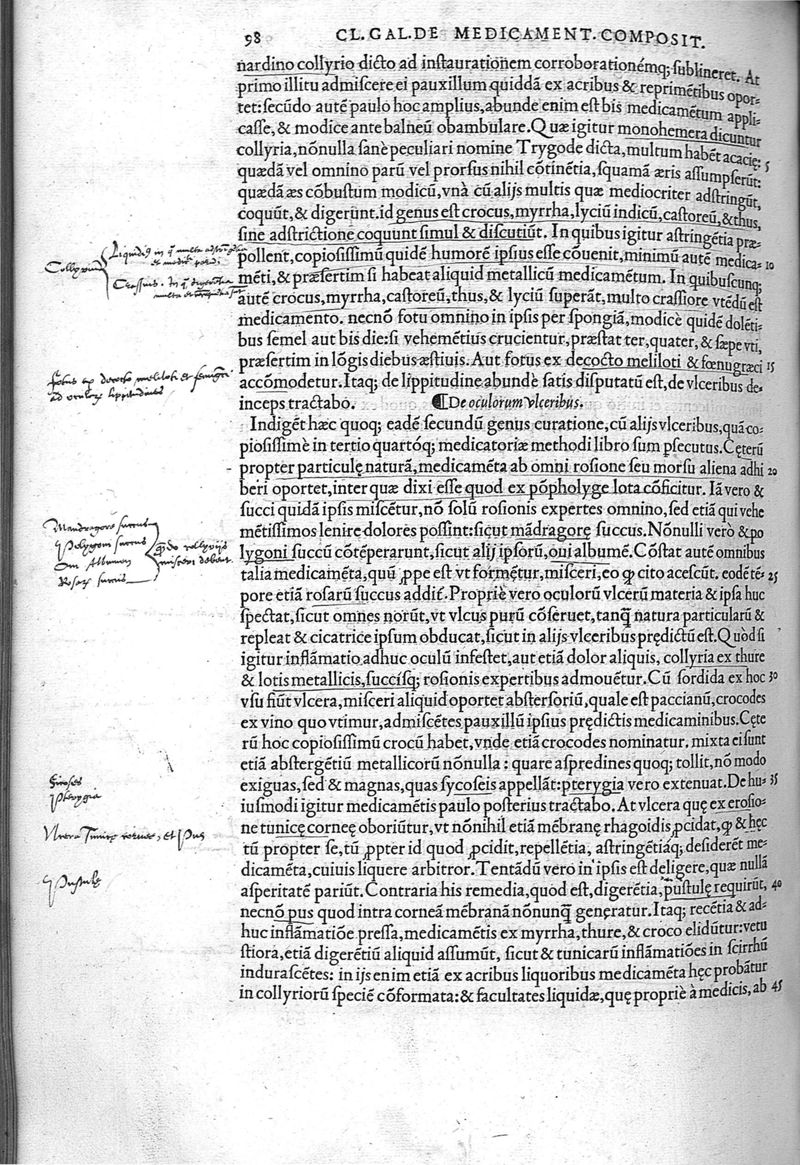 98 CL. GAL. DE MEDICAMENT. COMPOSIT.
nardino collyrio dicto ad instaurationem corroborationémq; sublineret. At
primo illitu admiscere ei pauxillum quiddã ex acribus & reprimẽtibus opor-
tet: secũdo autẽ paulo hoc amplius, abunde enim est bis medicamẽtum appli-
casse, & modice ante balneũ obambulare. Quæ igitur monohemera dicuntur
collyria, nõnulla sanè peculiari nomine Trygode dicta, multum habẽt acaciẹ: 5
quædã vel omnino parũ vel prorsus nihil cõtinẽtia, squamã æris assumpserũt:
quædã æs cõbustum modicũ, vnà cũ alijs multis quæ mediocriter adstringũt,
coquũt, & digerũnt. id genus est crocus, myrrha, lyciũ indicũ, castoreũ, & thus,
sine adstrictione coquunt simul & discutiũt. In quibus igitur astringẽtia præ-
pollent, copiosissimũ quidẽ humorẽ ipsius esse cõuenit, minimũ autẽ medica- 10
mẽti, & præsertim si habeat aliquid metallicũ medicamẽtum. In quibuscunq;
autẽ crocus, myrrha, castoreũ, thus, & lyciũ superãt, multo crassiore vtẽdũ est
medicamento. necnõ fotu omnino in ipsis per spongiã, modicè quidẽ dolẽti-
bus semel aut bis die: si vehemẽtius crucientur, præstat ter, quater, & sæpe vti,
præsertim in lõgis diebus æstiuis. Aut fotus ex decocto meliloti & fœnugræci 15
accõmodetur. Itaq; de lippitudine abundè satis disputatũ est, de vlceribus de-
inceps tractabo. ¶ De oculorum vlceribus.
Indigẽt hæc quoq; eadẽ secundũ genus curatione, cũ alijs vlceribus, quã co-
piosissimè in tertio quartóq; medicatoriæ methodi libro sum ꝓsecutus. Cẹterũ
propter particulẹ naturã, medicamẽta ab omni rosione seu morsu aliena adhi 20
beri oportet, inter quæ dixi esse quod ex põpholyge lota cõficitur. Iã vero &
succi quidã ipsis miscẽtur, nõ solũ rosionis expertes omnino, sed etiã qui vehe
mẽtissimos lenire dolores possint: sicut mãdragorẹ succus. Nõnulli verò & po
lygoni succũ cõtẽperarunt, sicut alij ipsorũ, oui albumẽ. Cõstat autẽ omnibus
talia medicamẽta, quũ ꝓpe est vt formẽtur, misceri, eo ꝙ cito acescũt. eodẽ tẽ- 25
pore etiã rosarũ succus addiẽ. Propriè vero oculorũ vlcerũ materia & ipsa huc
spectat, sicut omnes norũt, vt vlcus purũ cõseruet, tanq̃ natura particularũ &
repleat & cicatrice ipsum obducat, sicut in alijs vlceribus prẹdictũ est. Quòd si
igitur inflãmatio adhuc oculũ infestet, aut etiã dolor aliquis, collyria ex thure
& lotis metallicis, succisq; rosionis expertibus admouẽtur. Cũ sordida ex hoc 30
vsu fiũt vlcera, misceri aliquid oportet abstersoriũ, quale est paccianũ, crocodes
ex vino quo vtimur, admiscẽtes pauxillũ ipsius prẹdictis medicaminibus. Cẹte
rũ hoc copiosissimũ crocũ habet, vnde etiã crocodes nominatur. mixta ei sunt
etiã abstergẽtiũ metallicorũ nõnulla: quare aspredines quoq; tollit, nõ modo
exiguas, sed & magnas, quas sycoseis appellãt: pterygia vero extenuat. De hu- 35
iusmodi igitur medicamẽtis paulo posterius tractabo. At vlcera quẹ ex erosio-
ne tunicẹ corneẹ oboriũtur, vt nõnihil etiã mẽbranẹ rhagoidis ꝓcidat, ꝙ & hẹc
tũ propter se, tũ ꝓpter id quod ꝓcidit, repellẽtia, astringẽtiáq; desiderẽt me-
dicamẽta, cuiuis liquere arbitror. Tentãdũ vero in ipsis est deligere, quæ nullã
asperitatẽ pariũt. Contraria his remedia, quod est, digerẽtia, pustulẹ requirũt, 40
necnõ pus quod intra corneã mẽbranã nõnunq̃ generatur. Itaq; recẽtia & ad-
huc inflãmatiõe pressa, medicamẽtis ex myrrha, thure, & croco elidũtur: vetu
stiora, etiã digerẽtiũ aliquid assumũt, sicut & tunicarũ inflãmatiões in scirrhũ
indurascẽtes: in ijs enim etiã ex acribus liquoribus medicamẽta hẹc probãtur
in collyriorũ speciẽ cõformata: & facultates liquidæ, quẹ propriè à medicis, ab 45
Collyrium
Mandragore succus
Polygoni succus
Oui Albumen
Rosarum succus
Sicoses
Pterygia
Pustulę